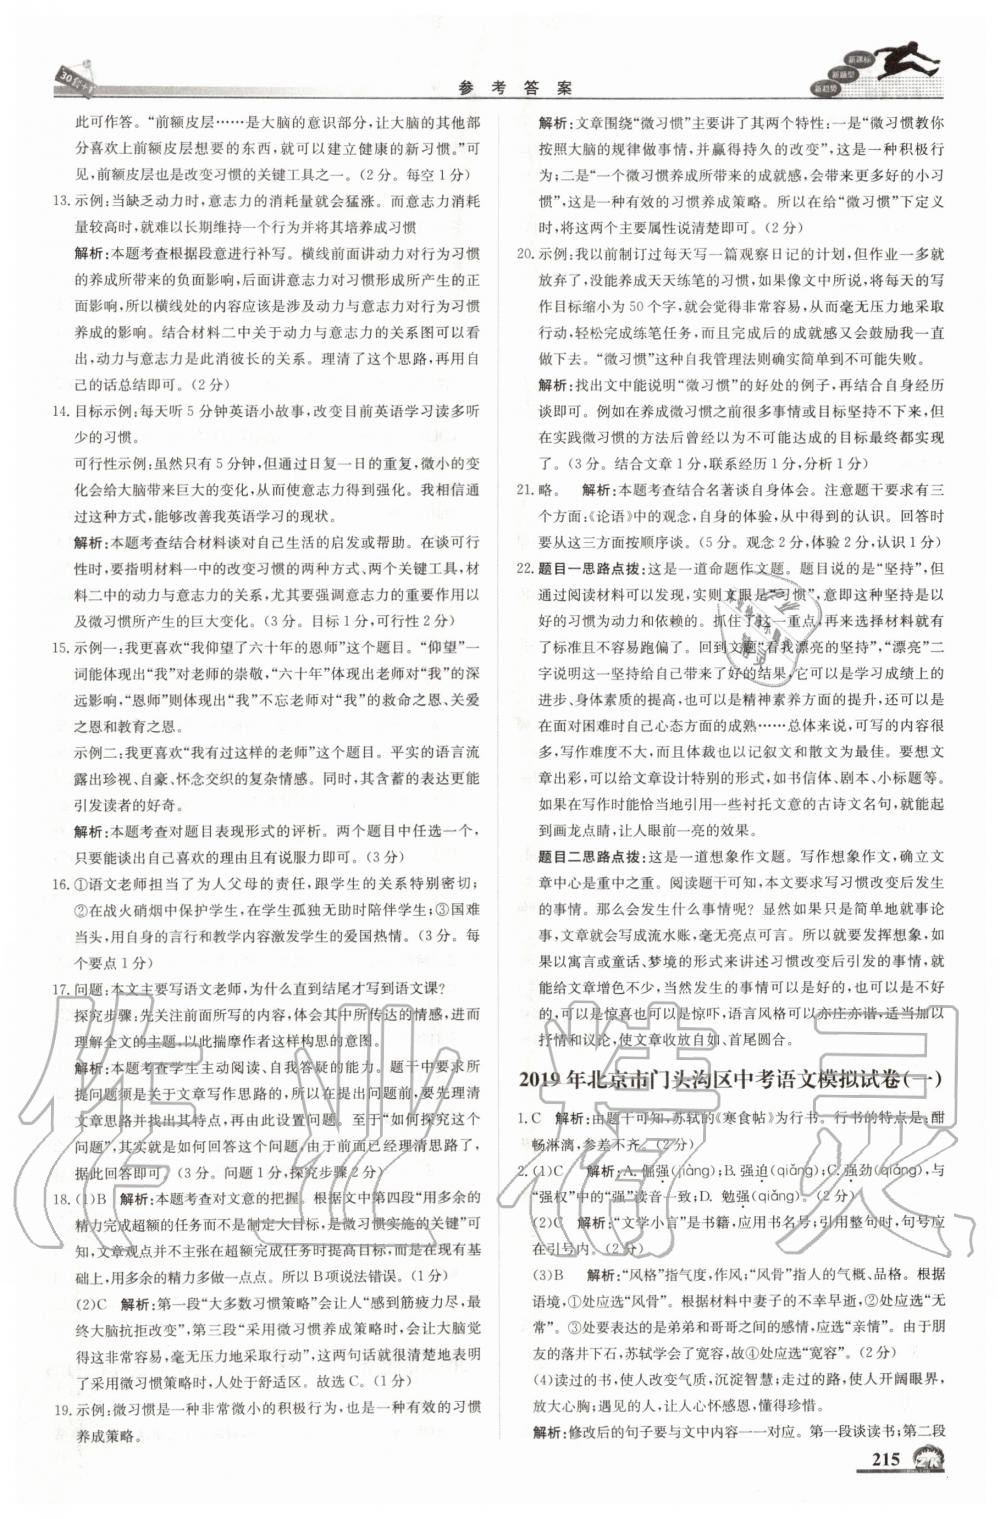 30套+1
新课标
新题型
新趋势
参考答案
此可作答。“前额皮层……是大脑的意识部分,让大脑的其他部
分喜欢上前额皮层想要的东西,就可以建立健康的新习惯。”可
见,前额皮层也是改变习惯的关键工具之一。(2分。每空1分)
13. 示例:当缺乏动力时,意志力的消耗量就会猛涨。而意志力消耗
量较高时,就难以长期维持一个行为并将其培养成习惯
解析:本题考查根据段意进行补写。横线前面讲动力对行为习惯
的养成所带来的负面影响,后面讲意志力对习惯形成所产生的正
面影响,所以横线处的内容应该是涉及动力与意志力对行为习惯
养成的影响。结合材料二中关于动力与意志力的关系图可以看
出,动力与意志力是此消彼长的关系。理清了这个思路,再用自
己的话总结即可。(2分)
14. 目标示例:每天听5分钟英语小故事,改变目前英语学习读多听
少的习惯。
可行性示例:虽然只有5分钟,但通过日复一日的重复,微小的变
化会给大脑带来巨大的变化,从而使意志力得到强化。我相信通
过这种方式,能够改善我英语学习的现状。
解析:本题考查结合材料谈对自己生活的启发或帮助。在谈可行
性时,要指明材料一中的改变习惯的两种方式、两个关键工具,材
料二中的动力与意志力的关系,尤其要强调意志力的重要作用以
及微习惯所产生的巨大变化。(3分。目标1分,可行性2分)
15. 示例一:我更喜欢“我仰望了六十年的恩师”这个题目。“仰望”一
词能体现出“我”对老师的崇敬,“六十年”体现出老师对“我”的深
远影响,“恩师”则体现出“我”不忘老师对“我”的救命之恩、关爱
之恩和教育之恩。
示例二:我更喜欢“我有过这样的老师”这个题目。平实的语言流
露出珍视、自豪、怀念交织的复杂情感。同时,其含蓄的表达更能
引发读者的好奇。
解析:本题考查对题目表现形式的评析。两个题目中任选一个,
只要能谈出自己喜欢的理由且有说服力即可。(3分)
16. ①语文老师担当了为人父母的责任,跟学生的关系特别密切;
②在战火硝烟中保护学生,在学生孤独无助时陪伴学生;③国难
当头,用自身的言行和教学内容激发学生的爱国热情。(3分。每
个要点1分)
17. 问题:本文主要写语文老师,为什么直到结尾才写到语文课?
探究步骤:先关注前面所写的内容,体会其中所传达的情感,进而
理解全文的主题,以此揣摩作者这样构思的意图。
解析:本题考查学生提出问题和解决问题的能力。题干中要求学
生所提问题须是关于选材、构思、情感等角度的,且具有一定的探
究价值,因此不要在文章表面内容上设置问题。至于“如何探究这个
问题”,其实就是如何回答这个问题。由于前面已经理清思路了,
据此回答即可。(3分。问题1分,探究步骤2分)
18. (1)B　解析:本题考查对文意的把握。根据文中第四段“用多余的
精力完成超额的任务而不是制定大目标,是微习惯实施的关键”可
知,文章观点并不主张在超额完成任务方面,而是主张在有现有基
础上,用多余的精力多做一点点。所以B项说法错误。(1分)
(2)C　解析:第一段“大多数习惯策略”会让人“感到筋疲力尽,最
终大脑抗拒改变”,第三段“采用微习惯养成策略时,会让改变
这件事非常容易,毫无压力地采取行动”,这两句话就很清楚地表明
了采用微习惯策略时,人处于舒适区。故选C。(1分)
19. 示例:微习惯是一种非常微小的积极行为,也是一种有效的习惯
养成策略。
解析:文章围绕“微习惯”主要讲了其两个特性:一是“微习惯教你
按照大脑的规律做事情,并赢得持久的改变”,这是一种积极行
为;二是“一个微习惯养成所带来的成就感,会带来更多的小习
惯”,这是一种有效的习惯养成策略。所以在给“微习惯”下定义
时,将这两个主要属性说清楚即可。(2分)
20. 示例:我以前制订过每天写一篇观察日记的计划,但作业一多就
放弃了,没能养成天天练笔的习惯。如果像文中所说,将每天的写
作目标缩小为50个字,就会觉得非常容易,从而毫无压力地采取
行动,轻松完成练笔任务,而且完成后的成就感又会鼓励我一直
做下去。“微习惯”这种自我管理法则确实简单易行,不可能失败。
解析:找出文中能说明“微习惯”的好处的例子,再结合自身经历
谈即可。例如在养成微习惯之前很多事情或目标坚持不下来,但
在实践微习惯的方法后曾经以为不可能达成的目标最终都实现
了。(3分。结合文章1分,联系经历1分,分析1分)
21. 略。　解析:本题考查结合名著谈自身体会。注意题干要求有三
个方面:《论语》中的观念,自身的体验,从中得到的认识。回答时
要从这三方面按顺序谈。(5分。观念2分,体验2分,认识1分)
22. 题目一思路点拨:这是一道命题作文题。题眼明显的是“坚持”,但
通过阅读材料可以发现,实则文眼是“习惯”,意即这种坚持是以良
好的习惯为动力和依靠的。抓住了这一重点,再来构思全文就相对
来说不容易跑偏了。回到文题“看我漂亮的坚持”,“漂亮”二
字说明这一坚持给自己带来了好的结果,它可以是学习成绩上的
进步、身体素质的提高,也可以是精神素养方面的提升,还可以是
在面对困难时自己心态方面的成熟……总体来说,可写的内容很
多,写作难度不大,而且体裁也以记叙文和散文为最佳。要想文
章出彩,可以给文章设计特别的形式,如书信体、剧本、小标题等。
如果在写作时能恰当地引用一些衬托文意的古诗文名句,就能起
到画龙点睛,让人眼前一亮的效果。
题目二思路点拨:这是一道想象作文题。写作想象作文,确立文
章中心是重中之重。阅读题干可知,本文要求写习惯改变后发生
的事情。那么会发生什么事情呢?显然如果只是简单地就事论
事,文章就会写成流水账,毫无亮点可言。所以就要发挥想象,如
果以寓言或童话、梦境的形式来讲述习惯改变后引发的事情,就
给文章增色不少,当然在平时考试中可以运用。这个结果可以是好
的,可以是惊喜也可以是惊吓,语言风格可以亦庄亦谐,适当加以
抒情和议论,使文章收放自如、首尾圆合。
2019年北京市门头沟区中考语文模拟试卷(一)
1. C　解析:由题干可知,苏轼的《寒食帖》为行书。行书的特点是:酣
畅淋漓,参差不齐。(2分)
2. (1)C　解析:A. 倔强(jiàng);B. 强迫(qiǎng);C. 强劲(qiáng),与
“强权”中的“强”读音一致;D. 勉强(qiǎng)。(2分)
(2)C　解析:“文学小言”是书籍,应用书名号;引用整句时,句号应
在引号内。(2分)
(3)B　解析:“风格”指气度,作风;“风骨”指人的气概、品格。根据
语境,①处应选“风骨”。根据材料中妻子的不幸早逝,②处应选“无
常”。③处要表达的是弟弟和哥哥之间的感情,应选“亲情”。由于朋
友的落井下石,苏轼学会了宽容,故④处应选“宽容”。(2分)
(4)读过的书,使人改变气质,沉淀智慧;走过的路,使人开阔眼界,
放大心胸;遇到的人,让人心怀感恩,懂得珍惜。
解析:修改后的句子要与文中内容一一对应。第一段谈读书;第二段
215
作业精灵